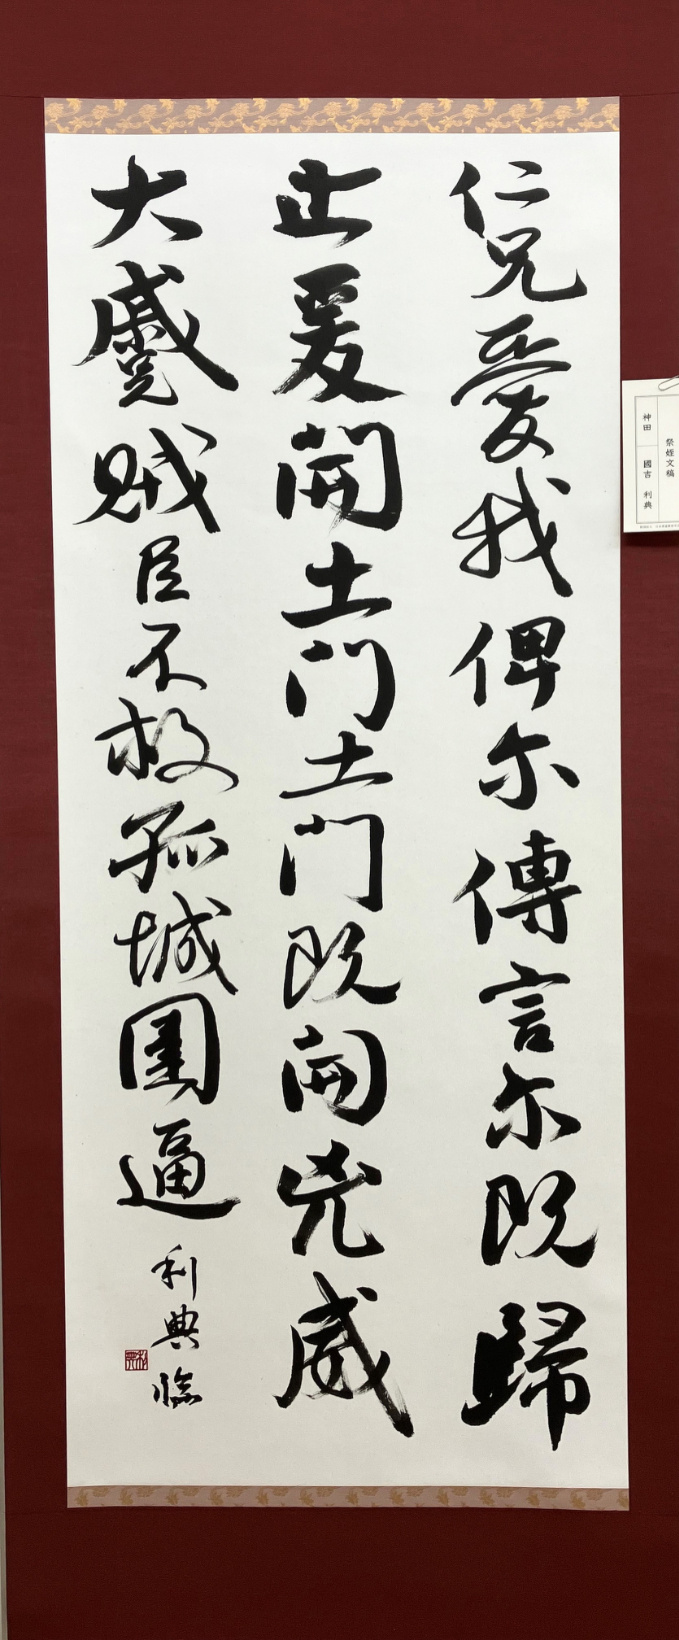 仁兄愛我俾尓傳言尓既歸
止爰開土門土門既開兇威
大蹙賊臣不救孤城圍逼
利典臨
祭姪文稿
神田 國吉 利典